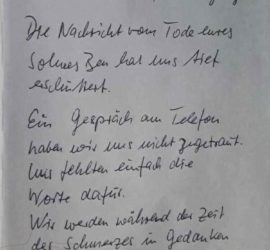 Die Nachricht vom Tode eures
Sohnes Ben hat uns tief
erschüttert.
Ein Gespräch am Telefon
haben wir uns nicht zugetraut.
Uns fehlten einfach die
Worte dafür.
Wir werden während der Zeit
des Schmerzes in Gedanken